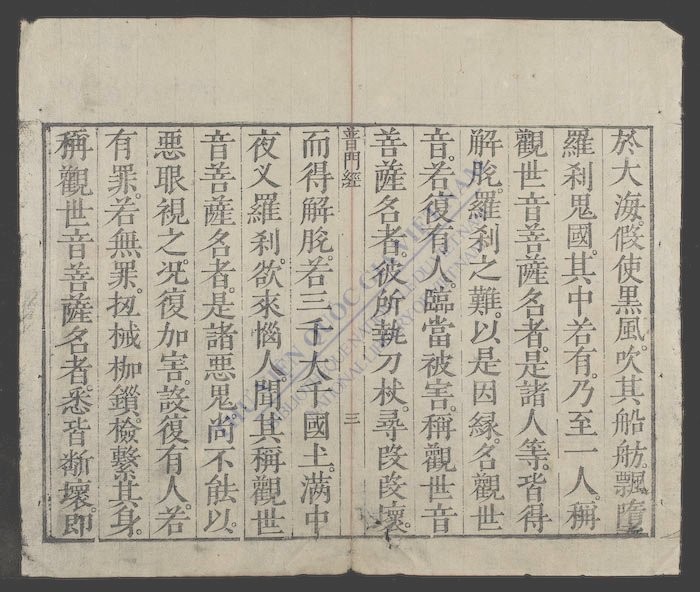 於大海。假使黒風。吹其船舫。飄墮
羅刹鬼國。其中若有。乃至一人。稱
觀世音菩薩名者。是諸人等。皆得
解脫。羅刹之難。以是因緣。名觀世
音。若復有人。臨當被害。稱觀世音
菩薩名者。彼所執刀杖。尋段段壞。
普門經
三
而得解脫。若三千大千國土。滿中
夜叉羅刹。欲來惱人。聞其稱觀世
音菩薩名者。是諸悪鬼。尚不能以
悪眼視之。况復加害。設復有人。若
有罪。若無罪。杻械枷鎖。檢繫其身。
稱觀世音菩薩名者。悉皆断壞。即